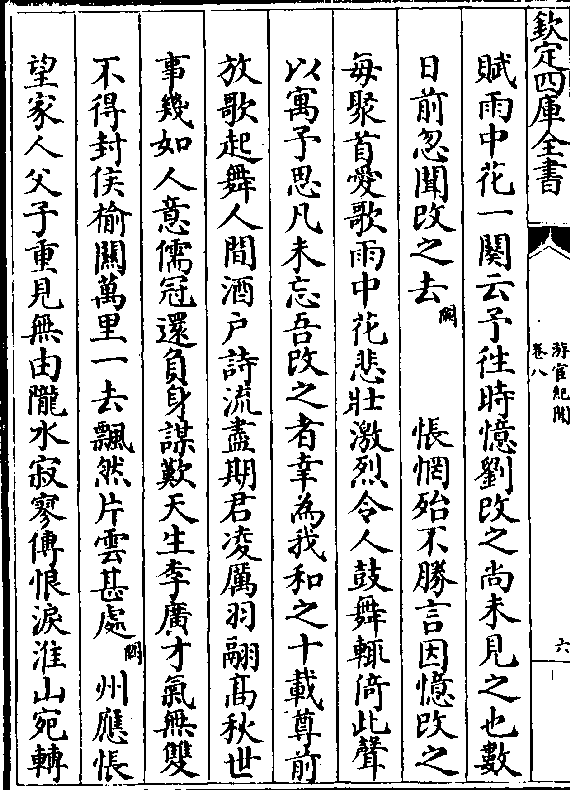 欽定四庫全書
游宦紀聞
卷八
六
賦雨中花一闋云予往時憶劉改之尚未見之也數
日前忽聞改之去闕 悵惘殆不勝言因憶改之
每聚首愛歌雨中花悲壯激烈令人鼓舞輒倚此聲
以寓予思凡未忘吾改之者幸為我和之十載尊前
放歌起舞人間酒户詩流盡期君凌厲羽翮髙秋世
事幾如人意儒冠還負身謀歎天生李廣才氣無雙
不得封侯榆關萬里一去飄然片雲甚處闕 州應悵
望家人父子重見無由隴水寂寥傳恨淚淮山宛轉